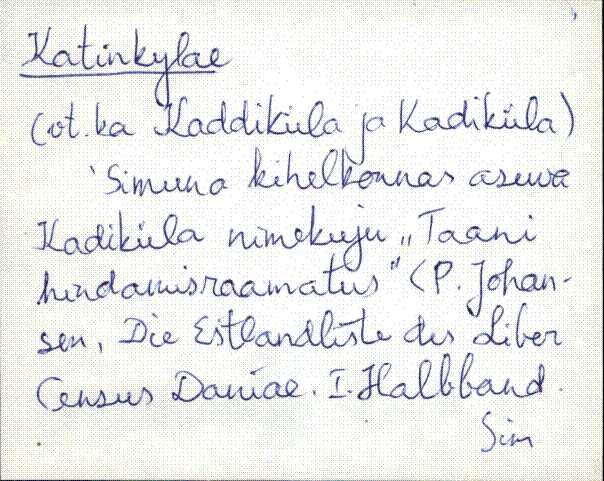 Katinkylae
(vt. ka Kaddiküla ja Kadiküla)
'Simuna kihelkonnas asuva
Kadiküla nimekuju „Taani
hindamisraamatus" (P. Johan-
sen, Die Estlandliste des Liber
Census Daniae. I. Halbband.
Sim